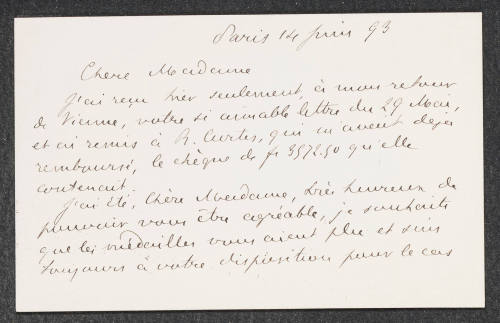 Paris 14 juin 93
Chere Madame
J'ai reçu hier seulement, à mon retour
de Vienne, votre si aimable lettre du 29 Mai,
et ai remis à R. Curtis, qui m'avait deja
remboursé, le chèque de fr 3572.50 qu'elle
contenait.
J'ai été, Chère Madame, très heureux de
pouvoir vous être agréable, je souhaite
que les médailles vous aient plu et suis
toujours à votre disposition pour le cas